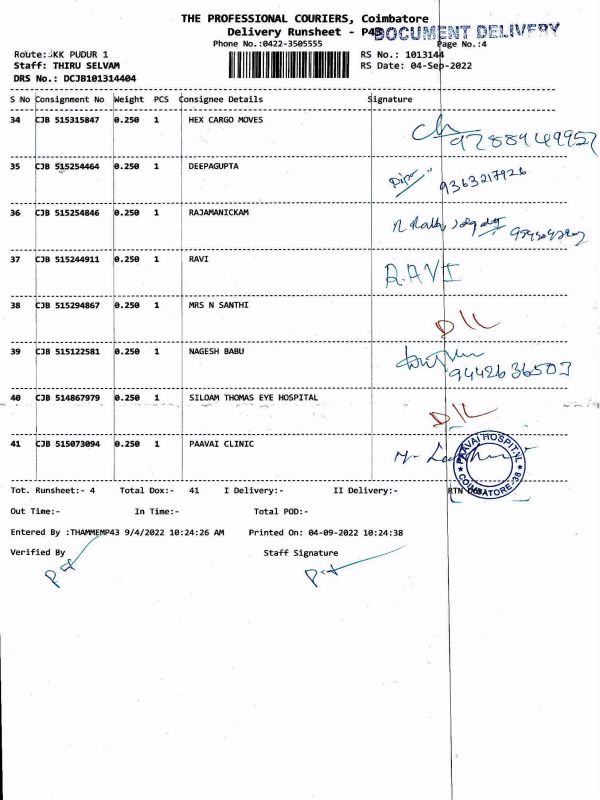 THE PROFESSIONAL COURIERS, Coimbatore
Delivery Runsheet - P43
DOCUMENT DELIVERY
Phone No.:0422-3505555
Page No.:4
Route:.KK PUDUR 1
RS No.: 1013144
Staff: THIRU SELVAM
RS Date: 04-Sep-2022
DRS No.: DCJB101314404
S No Consignment No Weight PCS Consignee Details Signature
34 CJB 515315847 0.250 1 HEX CARGO MOVES
9788949957
35 CJB 515254464 0.250 1 DEEPAGUPTA
9363217926
36 CJB 515254846 0.250 1 RAJAMANICKAM
37 CJB 515244911 0.250 1 RAVI
R.AVI
38 CJB 515294867 0.250 1 MRS N SANTHI
DLL
39 CJB 515122581 0.250 1 NAGESH BABU
9442636503
40 CJB 514867979 0.250 1 SILOAM THOMAS EYE HOSPITAL
DLL
41 CJB 515073094 0.250 1 PAAVAI CLINIC
PAAVAI HOSPITAL
COIMBATORE-38
Tot. Runsheet:- 4 Total Dox:- 41 I Delivery:- II Delivery:- RTN
Out Time:- In Time:- Total POD:-
Entered By :THAMMEMP43 9/4/2022 10:24:26 AM Printed On: 04-09-2022 10:24:38
Verified By Staff Signature